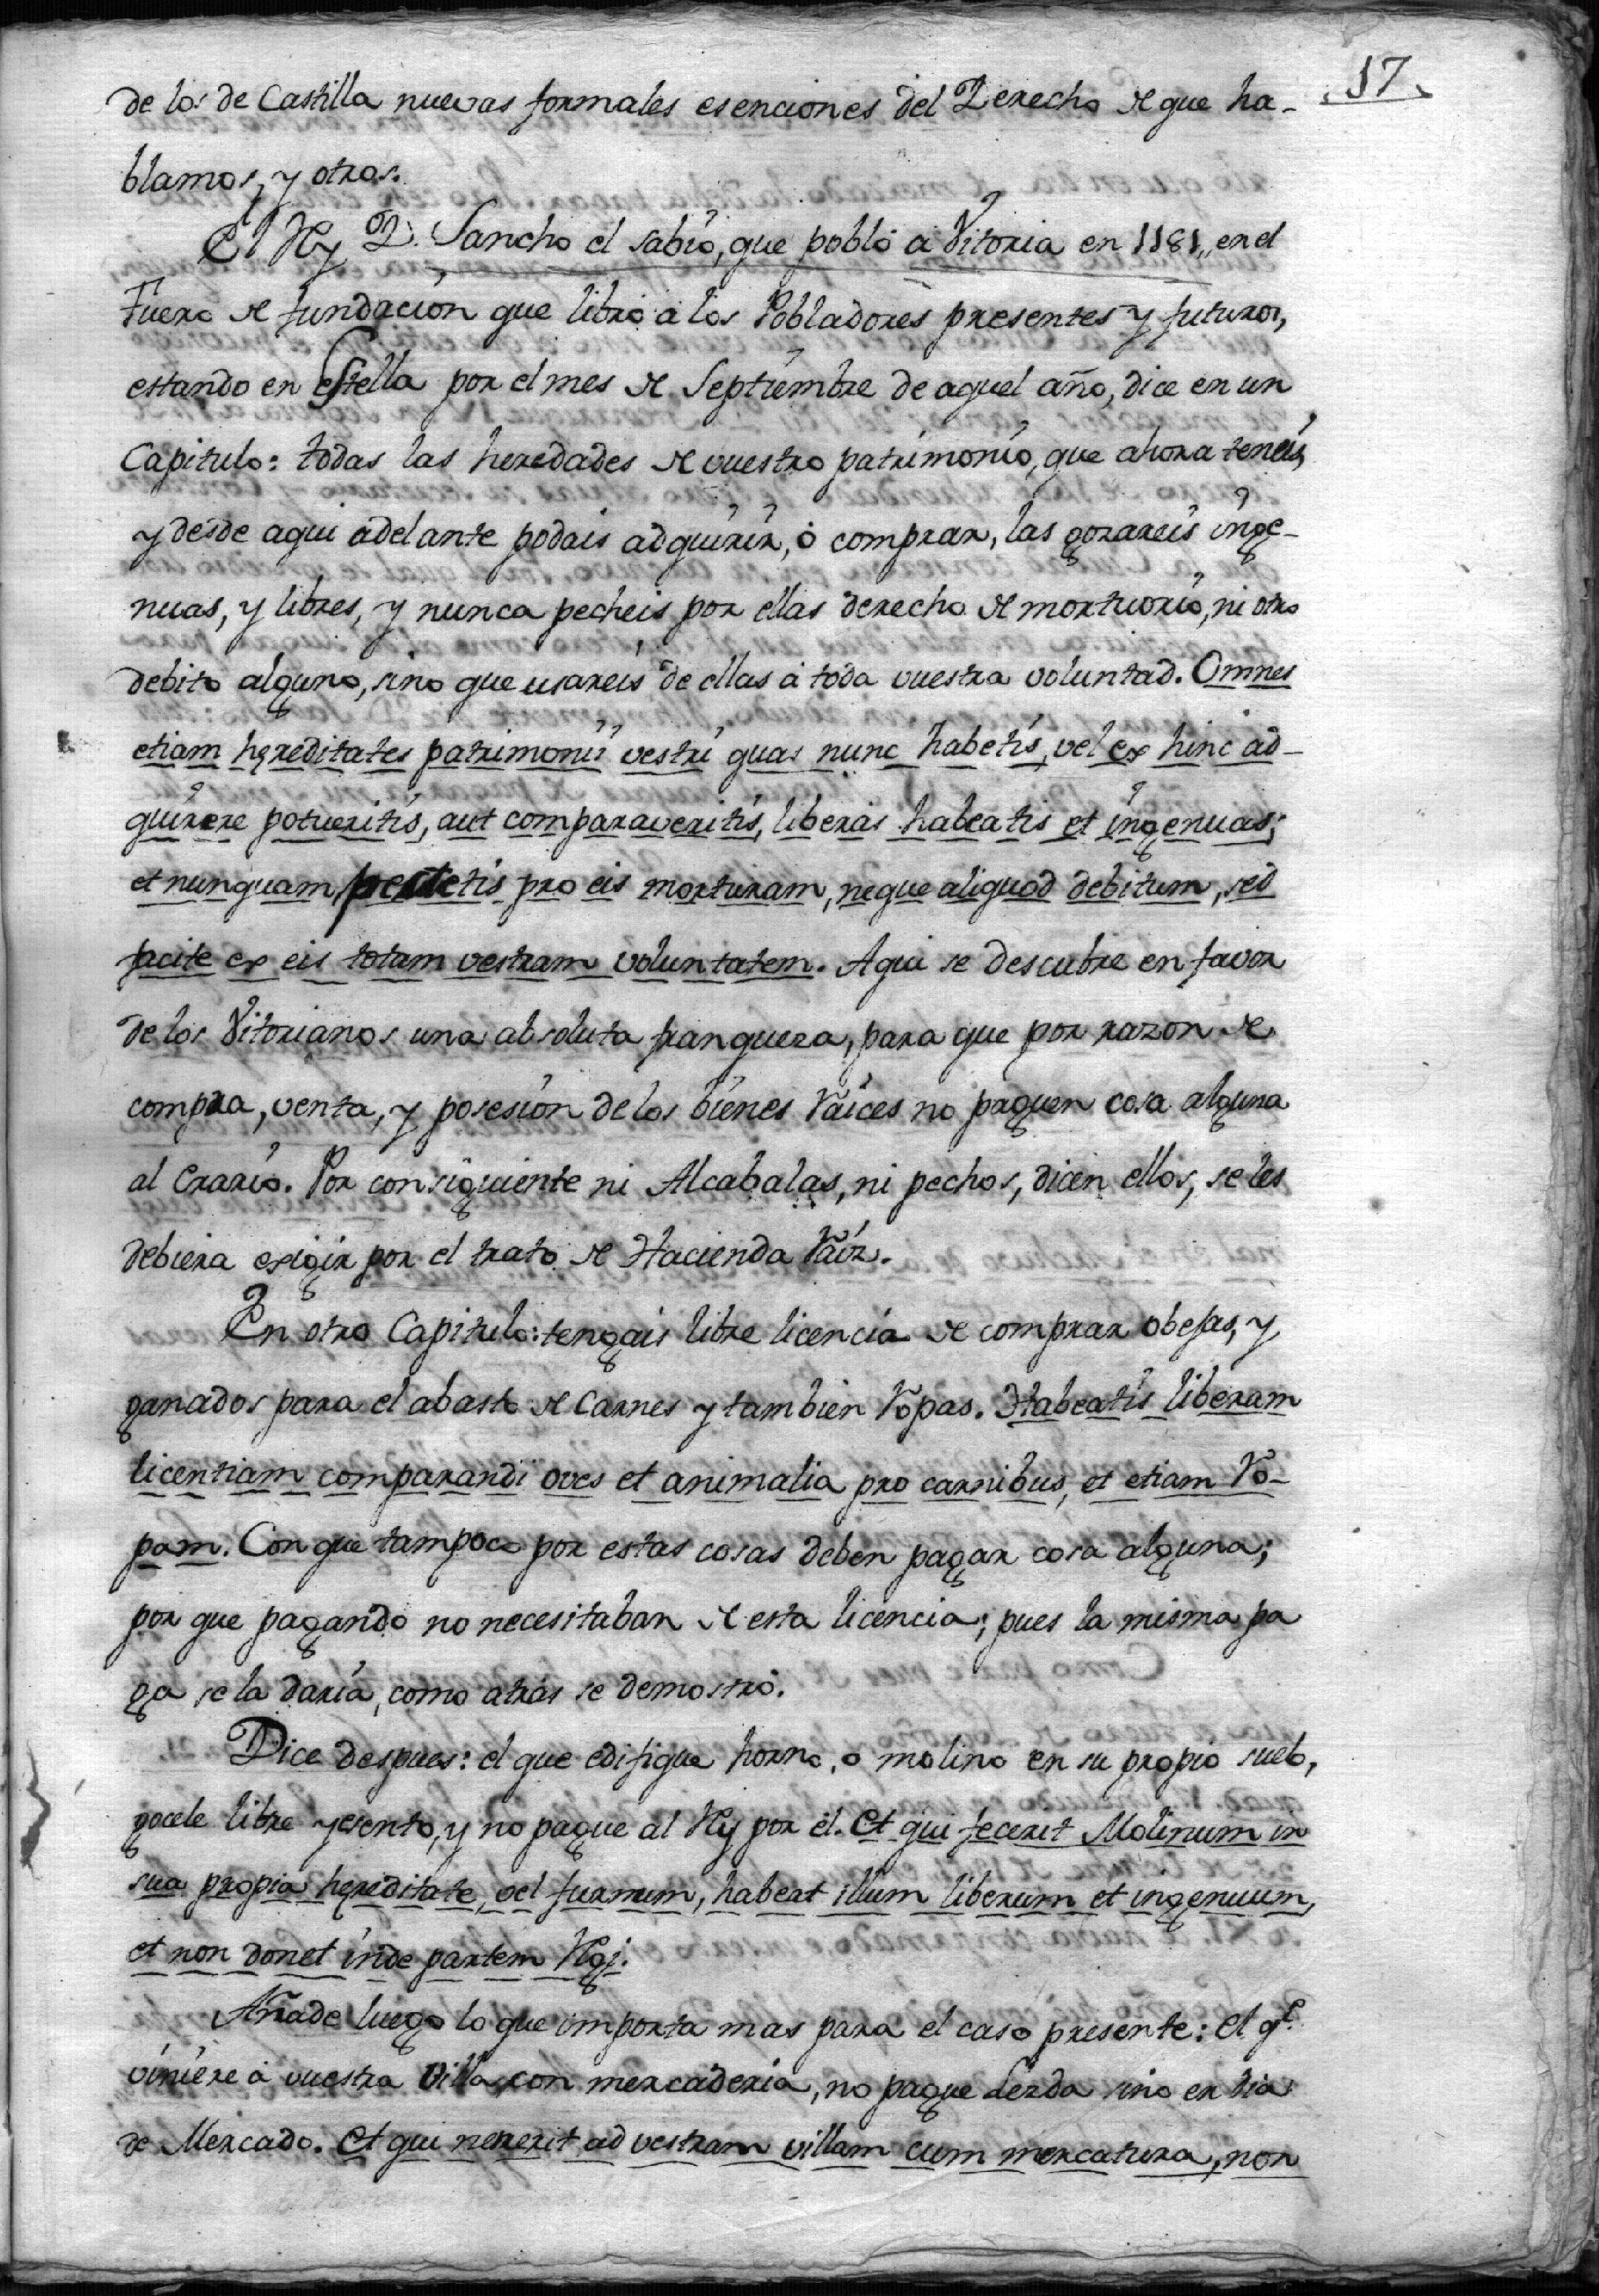 17.
de los de Castilla nuevas formales esenciones del Derecho de que ha-
blamos, y otros.
El Rey D. Sancho el sabio, que pobló á Vitoria en 1181,, en el
Fuero de fundacion que libró á los Pobladores presentes y futuros,
estando en Estella por el mes de Septiembre de aquel año, dice en un
Capitulo: todas las heredades de vuestro patrimonio, que ahora teneis,
y desde aqui adelante podais adquirir, ó comprar, las gozareis inge-
nuas, y libres, y nunca pecheis por ellas derecho de mortuorio, ni otro
debito alguno, sino que usareis de ellas á toda vuestra voluntad. Omnes
etiam hęreditates patrimonii vestri quas nunc habetis, vel ex hinc ad-
quirere potueritis, aut comparaveritis, liberas habeatis et ingenuas;
et nunquam pectetis pro eis morturam, neque aliquod debitum, sed
facite ex eis totam vestram voluntatem. Aqui se descubre en favor
de los Vitorianos una absoluta franqueza, para que por razon de
compra, venta, y posesion de los bienes raices no paguen cosa alguna
al Erario. Por consiguiente ni Alcabalas, ni pechos, dicen ellos, se les
debiera exigir por el trato de Hacienda raiz.
En otro Capitulo: tengais libre licencia de comprar obejas, y
ganados para el abasto de Carnes y tambien ropas. Habeatis liberam
licentiam comparandi oves et animalia pro carnibus, et etiam ro-
pam. Con que tampoco por estas cosas deben pagar cosa alguna;
por que pagando no necesitaban de esta licencia; pues la misma pa
ga se la daria, como atras se demostró.
Dice despues: el que edifique horno, o molino en su propio suelo,
gocele libre y esento, y no pague al Rey por él. Et qui fecerit Molinum in
sua propia hęreditate, vel furnum, habeat illum liberum et ingenuum,
et non donet inde partem Regi.
Añade luego lo que importa mas para el caso presente: el q.e
viniere á vuestra Villa con mercaderia, no pague Lezda sino en dia
de Mercado. Et qui venerit ad vestram villam cum mercatura, non